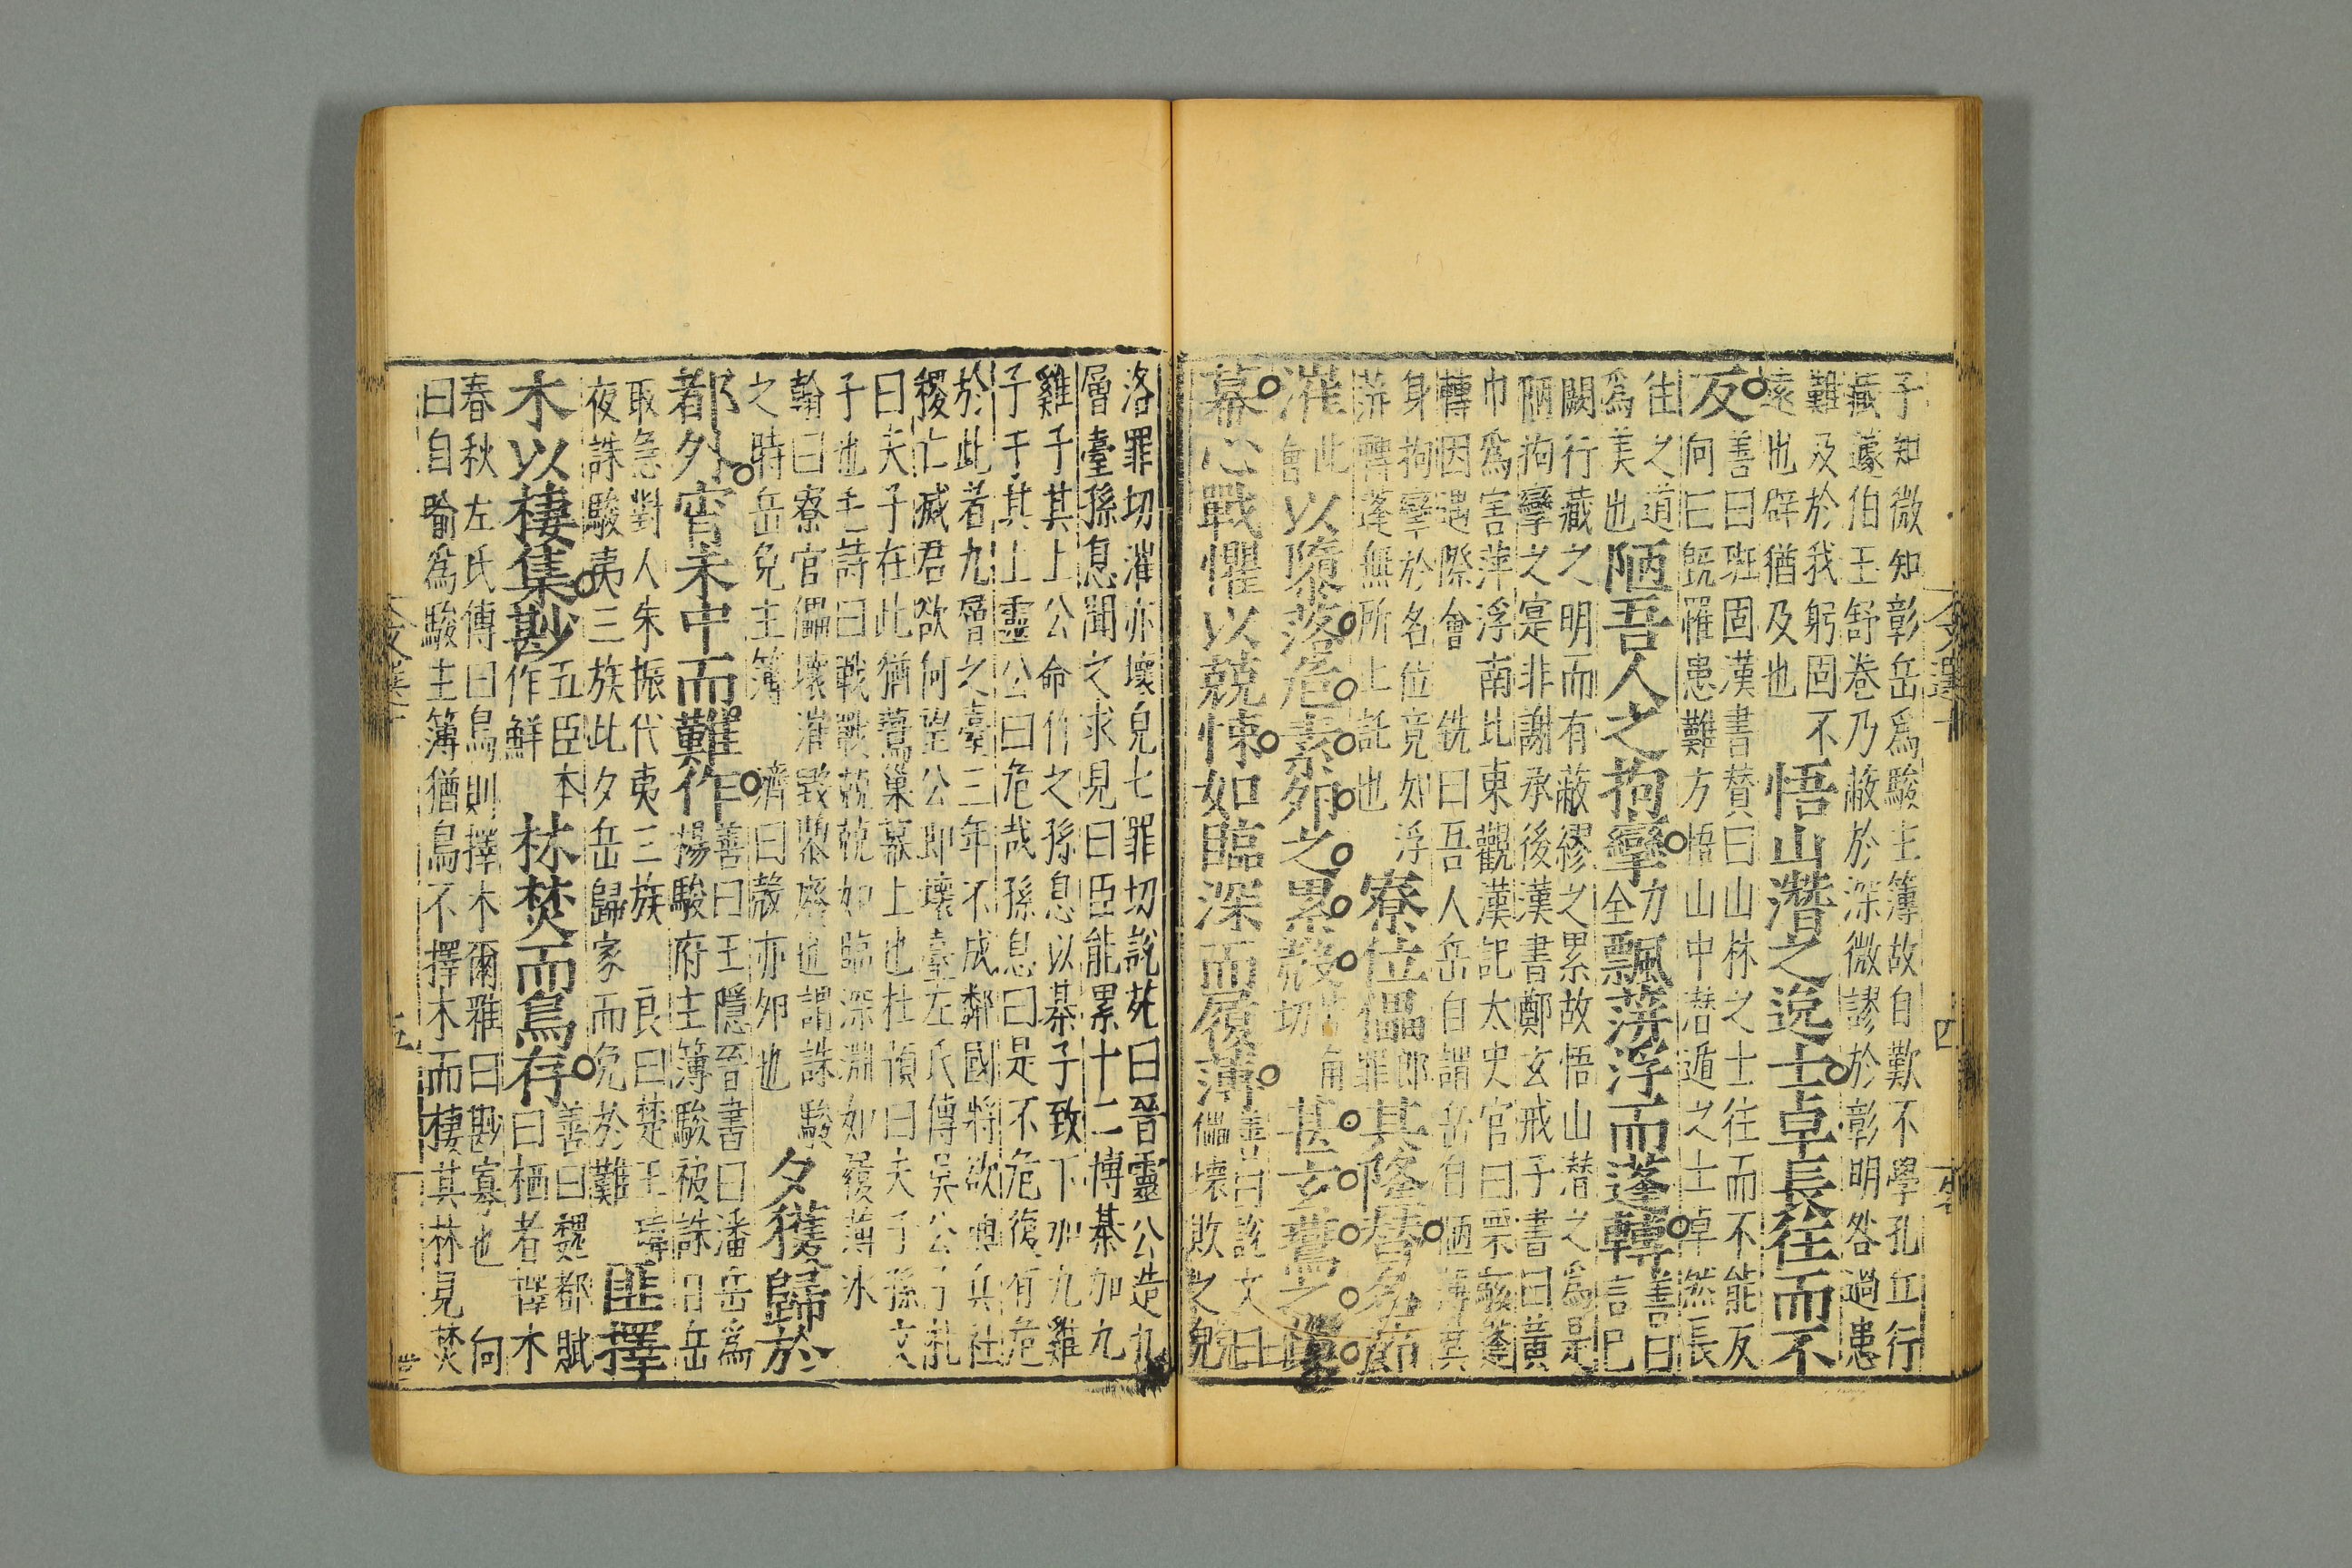 子知微知彰岳爲駿主簿故自歎不學孔丘行
藏蘧伯玉舒卷乃蔽於深微謬於彰明咎過患
難及於我躬固不
遠也辟猶及也
悟山潛之逸士卓長往而不
反
善曰班固漢書贊曰山林之士往而不能反
向曰旣罹患難方悟山中潛遁之士卓然長
往之道
爲美也
陋吾人之拘攣
力
全
飄萍浮而蓬轉
善曰
言巳
闕行藏之明而有蔽繆之累故悟山潛之爲是
陋拘攣之寔非謝承後漢書鄭玄戒子書曰黃
巾爲害萍浮南北東觀漢記太史官曰票駭蓬
轉因遇際會 銑曰吾人岳自謂岳自陋薄其
身拘攣於名位竟如浮
萍轉蓬無所止託也
寮位儡
郎
罪
其隆替名節
漼
此
會
以隳落危素卵之累殼
苦角
切
甚玄鷰之巢
幕心戰懼以兢悚如臨深而履薄
善曰說文曰
儡壞敗之皃
洛罪切漼亦壞皃七罪切說苑曰晉靈公造九
層臺孫息聞之求見曰臣能累十二博棊加九
雞子其上公命作之孫息以棊子致下加九雞
子于其上靈公曰危哉孫息曰是不危復有危
於此者九層之臺三年不成鄰國將欲興兵社
稷亡滅君欲何望公即壞臺左氏傳吳公子札
曰夫子在此猶鷰巢幕上也杜預曰夫子孫文
子也毛詩曰戰戰兢兢如臨深淵如履薄冰
翰曰寮官儡壞漼毀隳廢也謂誅駿
之時岳免主簿 濟曰殼亦卵也
夕獲歸於
都外宵未中而難作
善曰王隱晉書曰潘岳爲
楊駿府主簿駿被誅日岳
取急對人朱振代夷三族 良曰楚王瑋
夜誅駿夷三族此夕岳歸家而免於難
匪擇
木以棲集尠
五臣本
作鮮
林焚而鳥存
善曰魏都賦
曰栖者擇木
春秋左氏傳曰鳥則擇木爾雅曰尠寡也 向
曰自喻爲駿主簿猶鳥不擇木而棲其林見焚